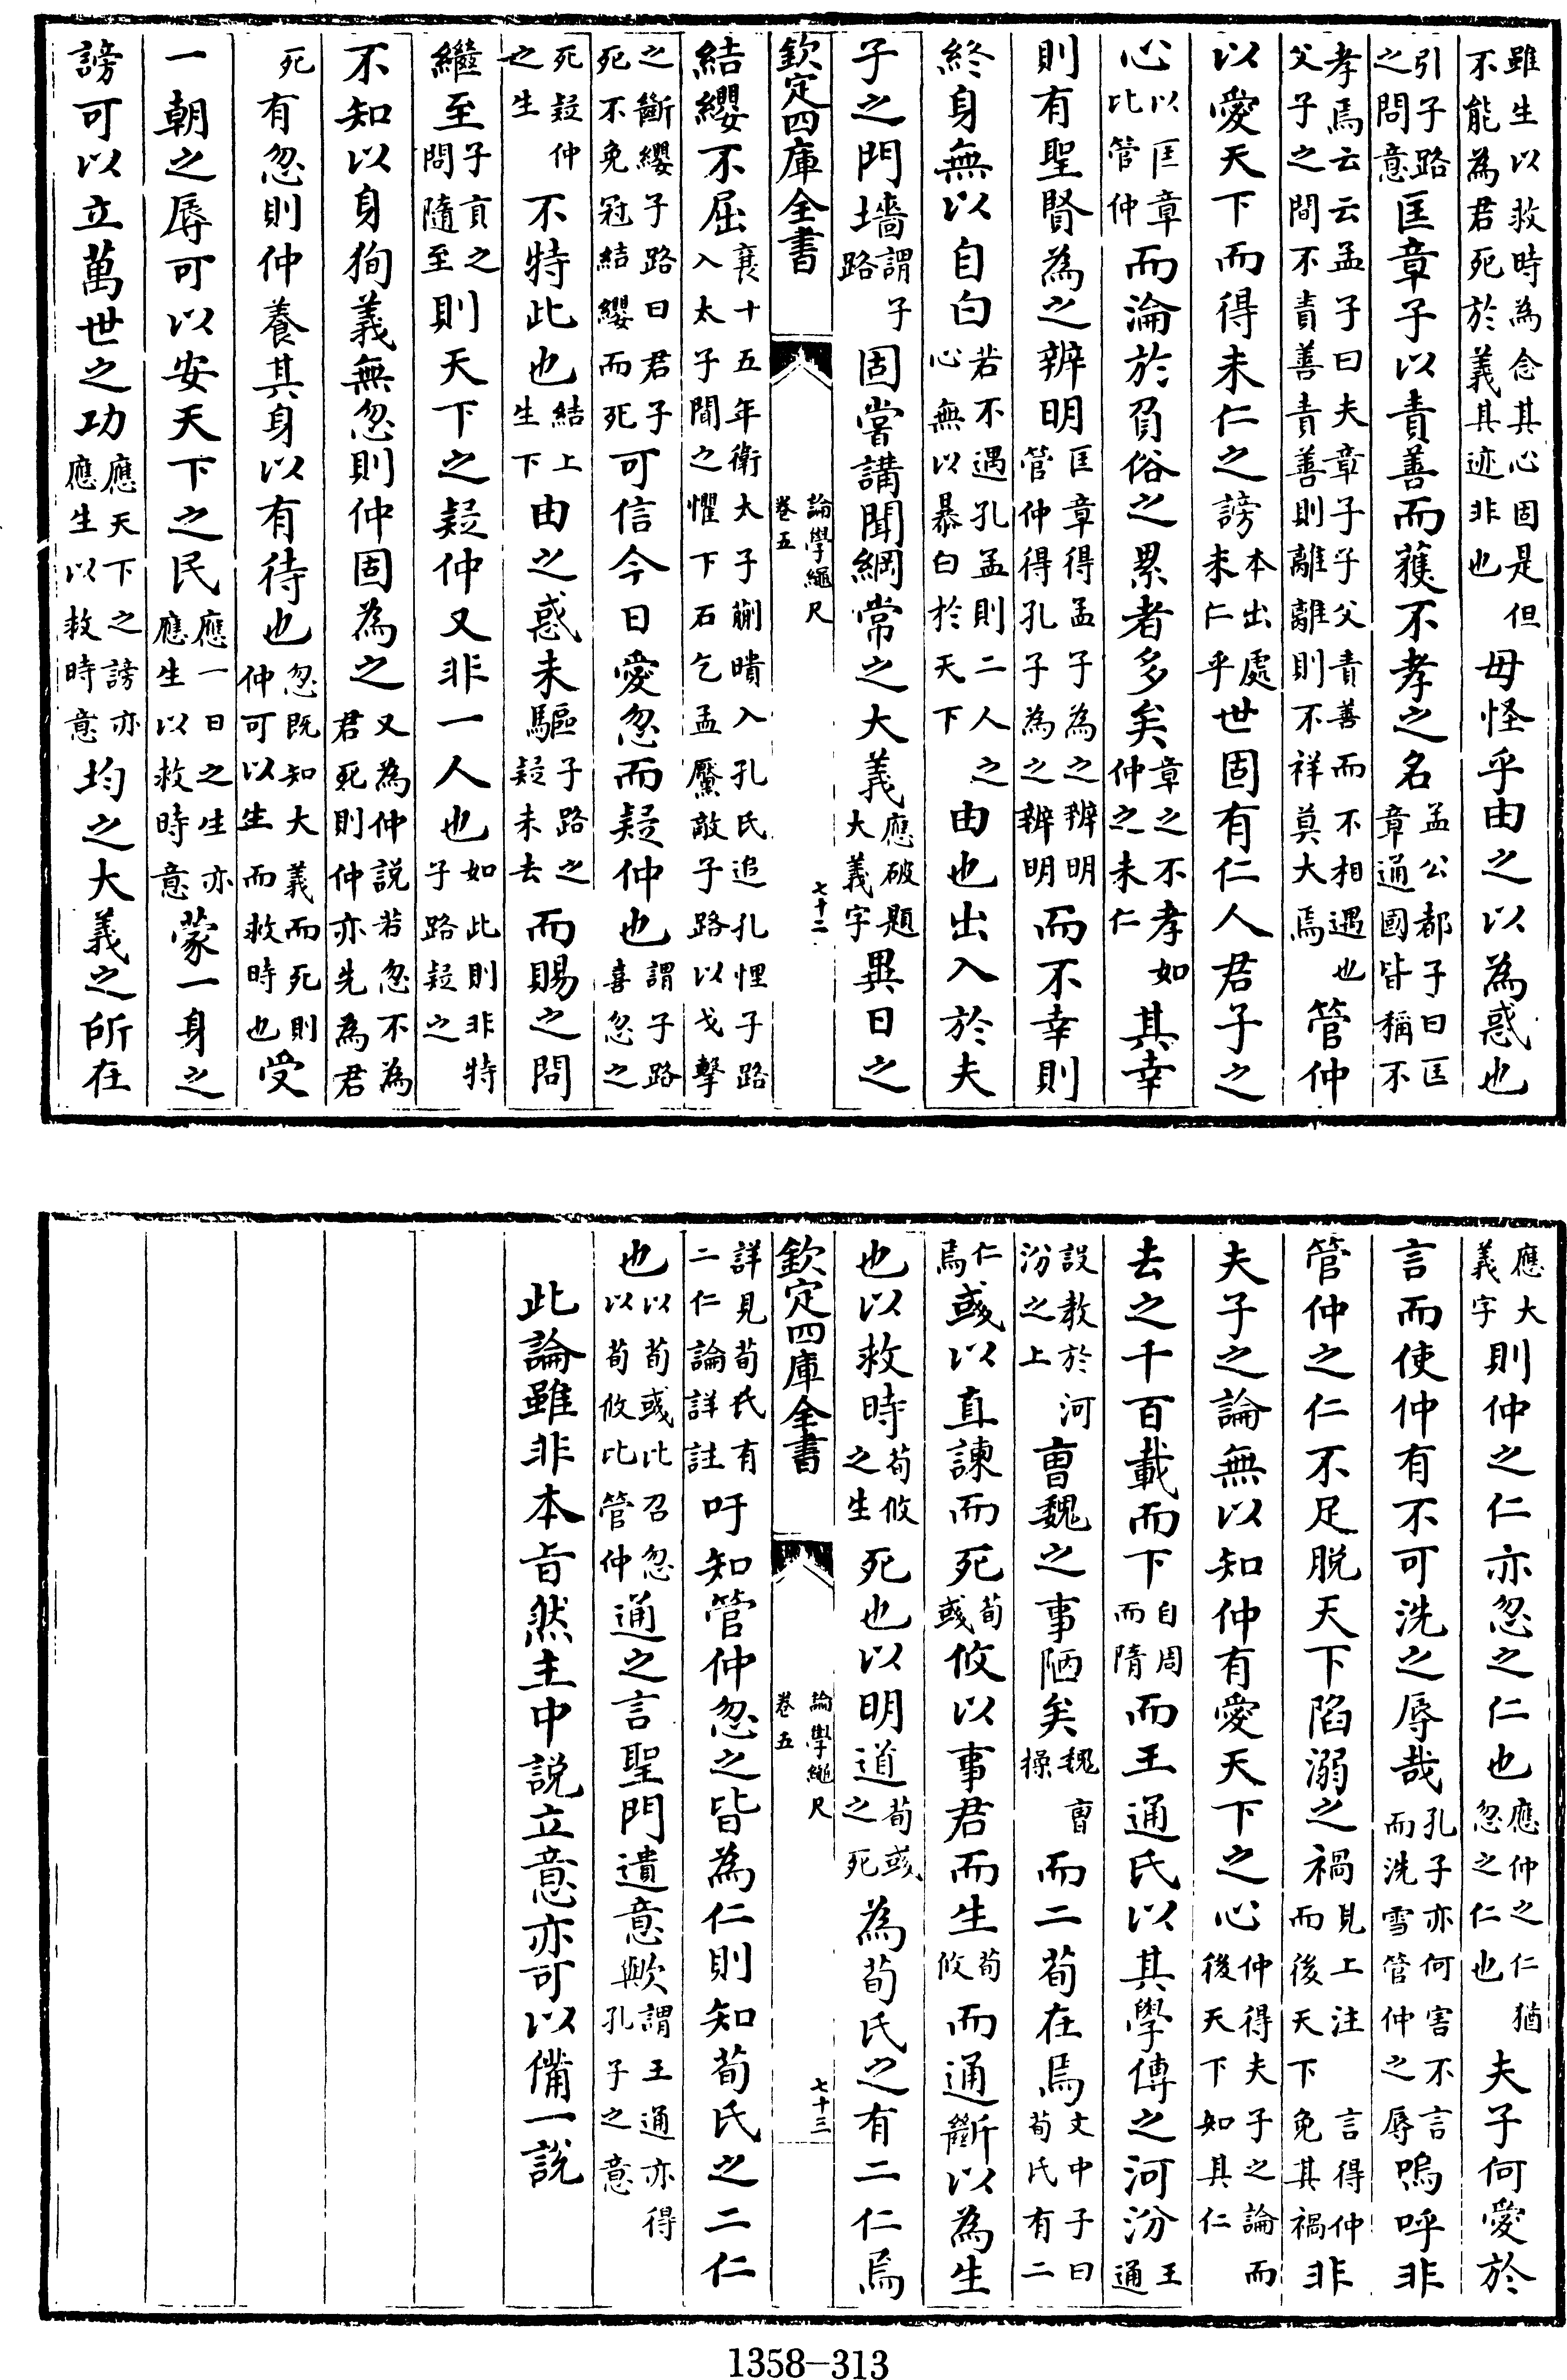 雖生以救時為念其心固是但不能為君死於義其迹非也毋怪乎由之以為惑也
引子路之問意匡章子以責善而獲不孝之名孟公都子曰匡章通國皆稱不
孝焉云云孟子曰夫章子子父責善而不相遇也父子之間不責善責善則離離則不祥莫大焉管仲
以愛天下而得未仁之謗本出處未仁乎世固有仁人君子之
心以匡章比管仲而淪於負俗之累者多矣章之不孝如仲之未仁其幸
則有聖賢為之辨明匡章得孟子為之辨明管仲得孔子為之辨明而不幸則
終身無以自白若不遇孔孟則二人之心無以暴白於天下由也出入於夫
子之門墻謂子路固嘗講聞綱常之大義應破題大義字異日之
欽定四庫全書 論學繩尺 卷五 七十二
結纓不屈襄十五年衛太子蒯聵入孔氏追孔悝子路入太子間之懼下石乞孟黶敵子路以戈擊
之斷纓子路曰君子死不免冠結纓而死可信今日愛忽而疑仲也謂子路喜忽之
死疑仲之生不特此也結上生下由之惑未驅子路之疑未去而賜之問
繼至子貢之問隨至則天下之疑仲又非一人也如此則非特子路疑之
不知以身狥義無忽則仲固為之又為仲說若忽不為君死則仲亦先為君
死有忽則仲養其身以有待也忽既知大義而死則仲可以生而救時也受
一朝之辱可以安天下之民應一日之生亦應生以救時意蒙一身之
謗可以立萬世之功應天下之謗亦應生以救時意均之大義之所在
應大義字則仲之仁亦忽之仁也應仲之仁猶忽之仁也夫子何愛於
言而使仲有不可洗之辱哉孔子亦何害不言而洗雪管仲之辱嗚呼非
管仲之仁不足脫天下陷溺之禍見上注言得仲而後天下免其禍非
夫子之論無以知仲有愛天下之心仲得夫子之論而後天下知其仁
去之千百載而下自周而隋而王通氏以其學傳之河汾王通
設教於河汾之上曹魏之事陋矣魏曹操而二荀在焉文中子曰荀氏有二
仁焉彧以直諫而死荀彧攸以事君而生荀攸而通斷以為生
也以救時荀攸之生死也以明道荀彧之死為荀氏之有二仁焉
欽定四庫全書 論學繩尺 卷五 七十三
詳見荀氏有二仁論詳註吁知管仲忽之皆為仁則知荀氏之二仁
也以荀彧比召忽以荀攸比管仲通之言聖門遺意歟謂王通亦得孔子之意
此論雖非本旨然主中說立意亦可以備一說
1358-313